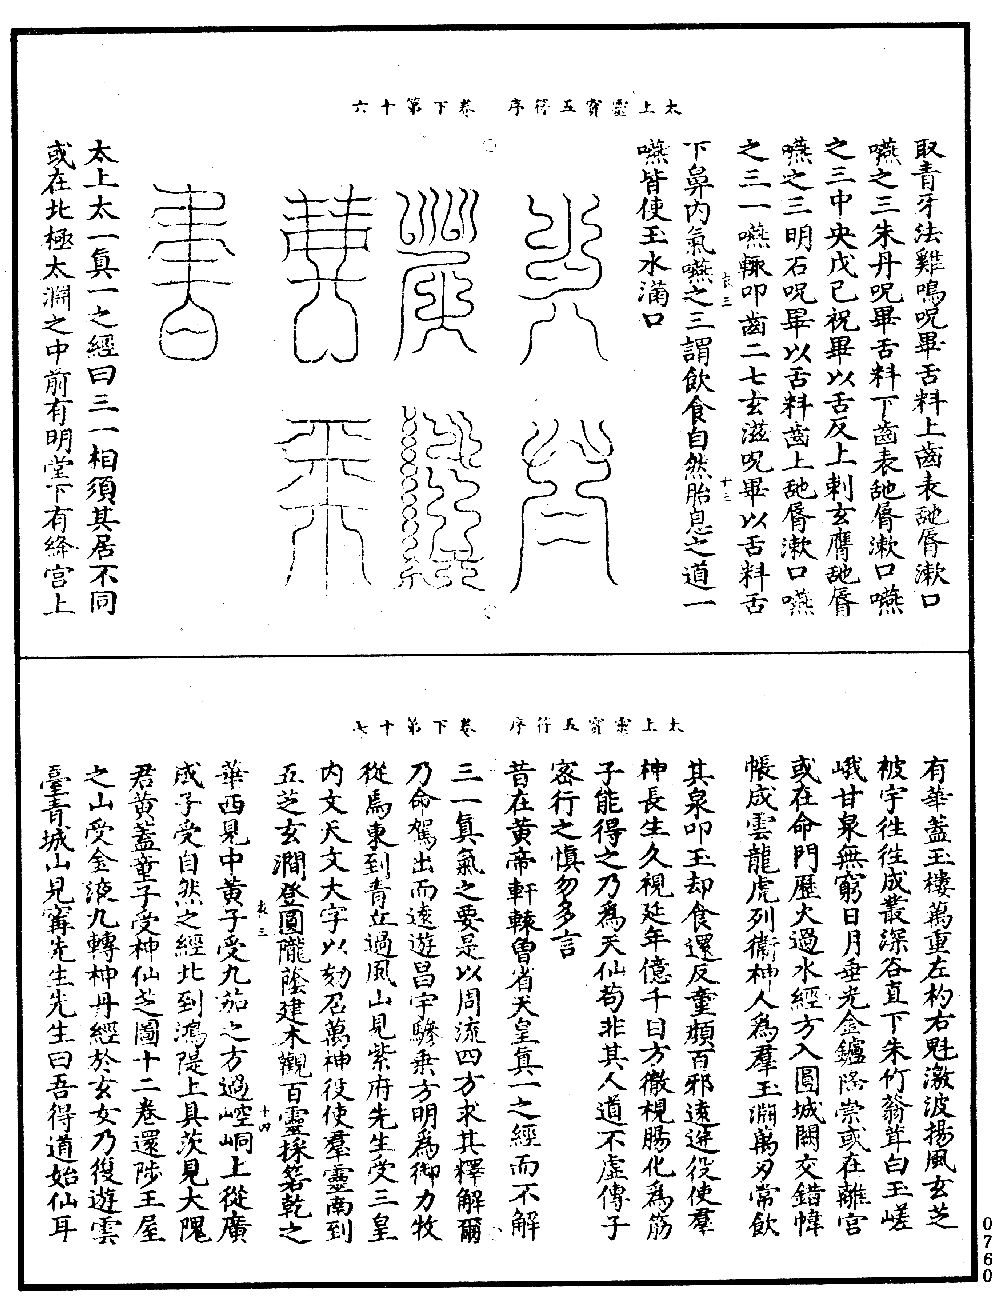 太上靈寶五符序　卷下第十六
取青牙法雞鳴呪畢舌料上齒表舐脣漱口
嚥之三朱丹呪畢舌料下齒表舐脣漱口嚥
之三中央戊己祝畢以舌反上刺玄膺舐脣
嚥之三明石呪畢以舌料齒上舐脣漱口嚥
之三一嚥輒叩齒二七玄滋呪畢以舌料舌
衣三　十三
下鼻内氣嚥之三謂飲食自然胎息之道一
嚥皆使玉水滿口
太上太一真一之經曰三一相須其居不同
或在北極太淵之中前有明堂下有絳宫上
太上靈寶五符序　卷下第十七
有華蓋玉樓萬重左杓右魁激波揚風玄芝
被宇往往成叢深谷直下朱竹蓊茸白玉嵯
峨甘泉無窮日月垂光金鑪隆崇或在離宮
或在命門歷火過水經方入圓城闕交錯幃
帳成雲龍虎列衛神人為羣玉淵萬刃常飲
其泉叩玉却食還反童顏百邪遠迸役使羣
神長生久視延年億千日方徹視腸化為筋
子能得之乃為天仙苟非其人道不虛傳子
密行之慎勿多言
昔在黃帝軒轅曾省天皇真一之經而不解
三一真氣之要是以周流四方求其釋解爾
乃命駕出而遠遊昌宇驂乘方明為御力牧
從焉東到青丘過風山見紫府先生受三皇
内文天文大字以劾召萬神役使羣靈南到
五芝玄澗登圓隴蔭建木觀百靈採若乾之
衣三　十四
華西見中黃子受九茄之方過崆峒上從廣
成子受自然之經北到鴻隄上具茨見大隗
君黃蓋童子受神仙芝圖十二卷還陟王屋
之山受金液九轉神丹經於玄女乃復遊雲
臺青城山見甯先生先生曰吾得道始仙耳
0760